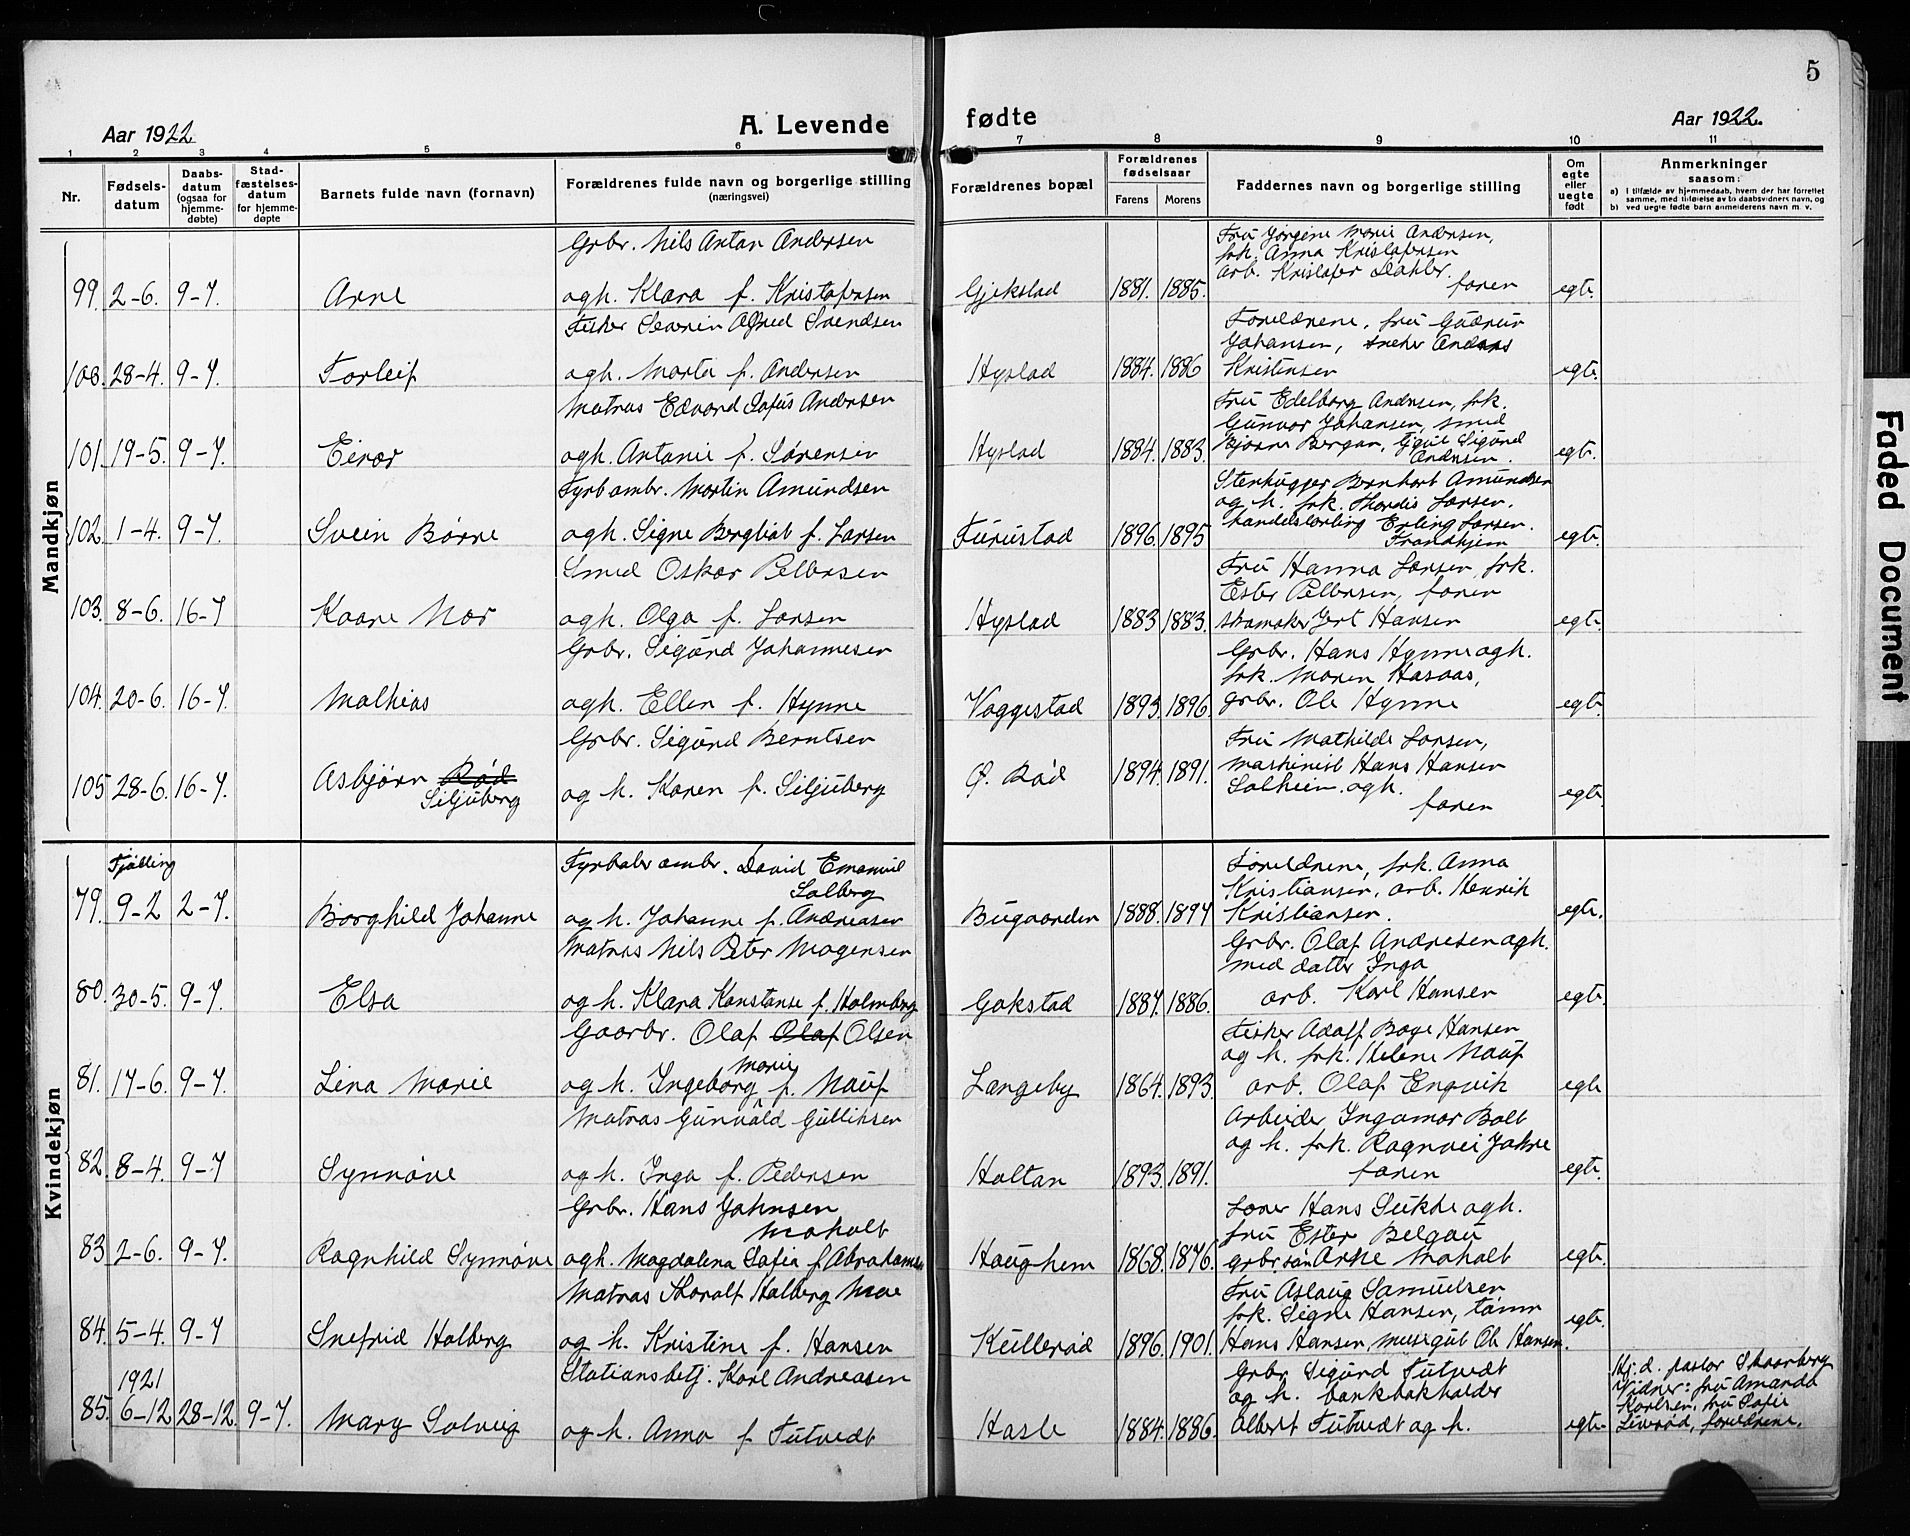 5
Aar 1922
A. Levende fødte
Aar 1922.
1 2 3 4 5 6 7 8 9 10 11
Nr.
Fødsels-
datum
Daabs-
datum
(ogsaa for
hjemme-
døbte)
Stad-
fæstelses-
datum
for hjemme-
døpte
Barnets fulde navn (fornavn)
Forældrenes fulde navn og borgerlige stilling
(næringsvei)
Forældrenes bopæl
Forældrenes
fødselsaar
Farens
Morens
Faddernes navn og borgerlige stilling
Om
egte
eller
uegte
født
Anmerkninger
saasom:
a) I tilfælde av hjemmedaab, hvem der har forrettet
samme, med tilføielse av to daabsvidners navn, og
b) ved uegte fødte barn anmelderens navn m. v.
Mandkjøn
99. 2-6. 9-7. Arne
Grbr. Nils Anton Andersen
ogh. Klara f. Kristofersen
Gjekstad 1881. 1885.
Fru Jørgine Marie Andersen,
frk. Anna Kristofersen
arb. Kristofer Dahler.
faren
egte.
100. 28-4. 9-7. Torleif
Fisker Severin Alfred Svendsen
ogh. Marta f. Andersen
Hystad 1884. 1886
Foreldrene, fru Gudrun
Johansen, sneker Andreas
Kristensen
egte.
101. 19-5. 9-7. Einar
Matros Edvard Sofus Andersen
ogh. Antonie f. Sørensen
Hystad 1884. 1883.
Fru Edelborg Andersen, frk.
Gunvor Johansen, smed
Bjarne Bergan, Sigurd
Andersen.
egte.
102. 1-4. 9-7. Svein Børre
Fyrbøter Martin Amundsen
ogh. Signe Bergliot f. Larsen
Furustad 1896. 1895
Stenhugger Bernhart Amundsen
og h. frk. Thordis Larsen,
handelslærling Erling Larsen.
Trondhjem
egte.
103. 8-6. 16-7 Kaare Nor
Smed Oskar Pettersen
ogh. Olga f. Larsen
Hystad 1883 1883.
Fru Hanna Larsen, frk.
Ester Pettersen, faren
skomaker Gert Hansen
egte.
104. 20-6. 16-7. Mathias
Grbr. Sigurd Johannesen
ogh. Ellen f. Hynne
Vaggestad 1893. 1896.
Grbr. Hans Hynne ogh.
frk. Maren Hasaas,
grbr. Ole Hynne
egte.
105 28-6. 16-7. Asbjørn Rød
Siljuberg
Grbr. Sigurd Berntsen
og h. Karen f. Siljuberg
Ø. Rød 1894. 1891.
Fru Mathilde Larsen,
maskinist Hans Hansen
Solheim. ogh.
faren
egte.
Kvindekjøn
Tjølling
79. 9-2 2-7. Borghild Johanne
Fyrbøter David Emanuel
Solberg
og h. Johanne f. Andreasen
Bugaarden 1888. 1894
Foreldrene, frk. Anna
Kristiansen, arb. Henrik
Kristiansen.
egte.
80. 30-5. 9-7. Elsa
Matros Nils Peter Mogensen
og h. Klara Konstanse f. Holmberg
Gokstad 1887. 1886.
Grbr. Olaf Andresen ogh.
med datter Inga
arb. Karl Hansen
egte.
81. 17-6. 9-7. Lina Marie
Gaarbr. Olaf Olaf Olsen
og h. Ingeborg Marie f. Nauf
Langeby 1864. 1893.
Fisker Adolf Bage Hansen
og h. frk. Helene Nauf
arb. Olaf Engvik
egte
82. 8-4. 9-7 Synnøve
Matros Gunvald Gulliksen
og h. Inga f. Pedersen
Holtan 1893. 1891.
Arbeider Ingamar Bolt
og h. frk. Ragnvei Jahre
faren
egte.
83 2-6. 9-7. Ragnhild Synnøve
Grbr. Hans Johnsen
Moholt
ogh. Magdalena Sofia f. Abrahamsen
Haughem 1868. 1876.
Lærer Hans Sukke ogh.
fru Ester Belgau
grbr.søn Arne Moholt
egte.
84. 5-4. 9-7 Snefrid Holberg
Matros Thoralf Holberg Moe
og h. Kristine f. Hansen
Kullerød 1896. 1901.
Fru Aslaug Samuelsen
frk. Signe Hansen, tømr
Hans Hansen, Ole Hansen.
egte.
1921
85. 6-12 28-12. 9-7. Mary Solveig
Stationsbetj. Karl Andreasen
og h. Anna f. Tutvedt
Hasle 1884. 1886.
Grbr Sigurd Tutvedt
og h. bankbokholder
Albert Tutvedt og h.
egte.
Hj.d. pastor Skaarberg
Vidner: fru Amanda
Karlsen, fru Sofie
Liverød, foreldrene.
Faded Document